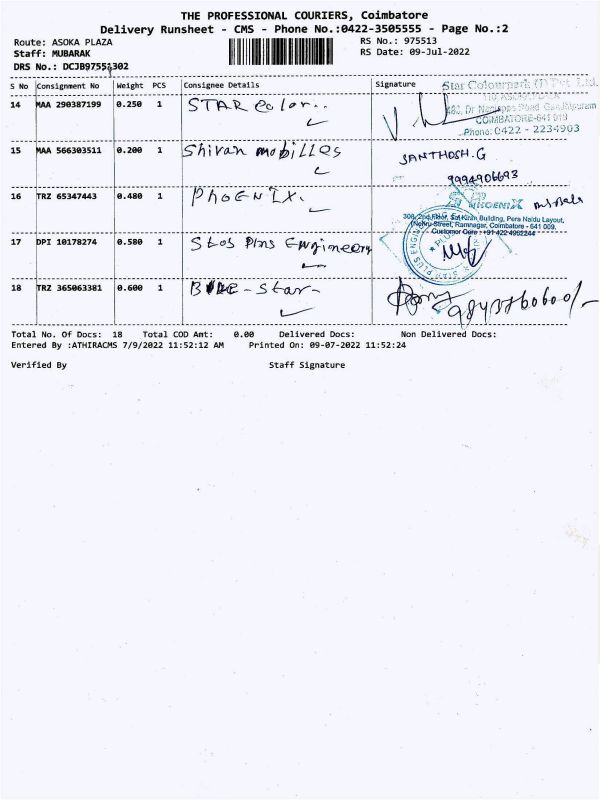 THE PROFESSIONAL COURIERS, Coimbatore
Delivery Runsheet - CMS - Phone No.:0422-3505555 - Page No.:2
Route: ASOKA PLAZA
RS No.: 975513
Staff: MUBARAK
RS Date: 09-Jul-2022
DRS No.: DCJB97551302
S No Consignment No Weight PCS Consignee Details Signature
Star Colourpark (I) Pvt. Ltd.
14 MAA 290387199 0.250 1 STAR Color..
COIMBATORE-641 018
Phone: 0422 - 2234903
15 MAA 566303511 0.200 1 Shivan mobilles
SANTHOSH.G
9994906693
16 TRZ 65347443 0.480 1 PhOENIX.
PHOENIX
308, 2nd Floor, Sai Kiran Building, Pera Naidu Layout,
(Nehru Street, Ramnagar, Coimbatore - 641 009.
Customer Care : +91 422 4982244
17 DPI 10178274 0.580 1 Stos Plns Engineery
18 TRZ 365063381 0.600 1 BLUE-Star-
Total No. Of Docs: 18 Total COD Amt: 0.00 Delivered Docs: Non Delivered Docs:
Entered By :ATHIRACMS 7/9/2022 11:52:12 AM Printed On: 09-07-2022 11:52:24
Verified By Staff Signature